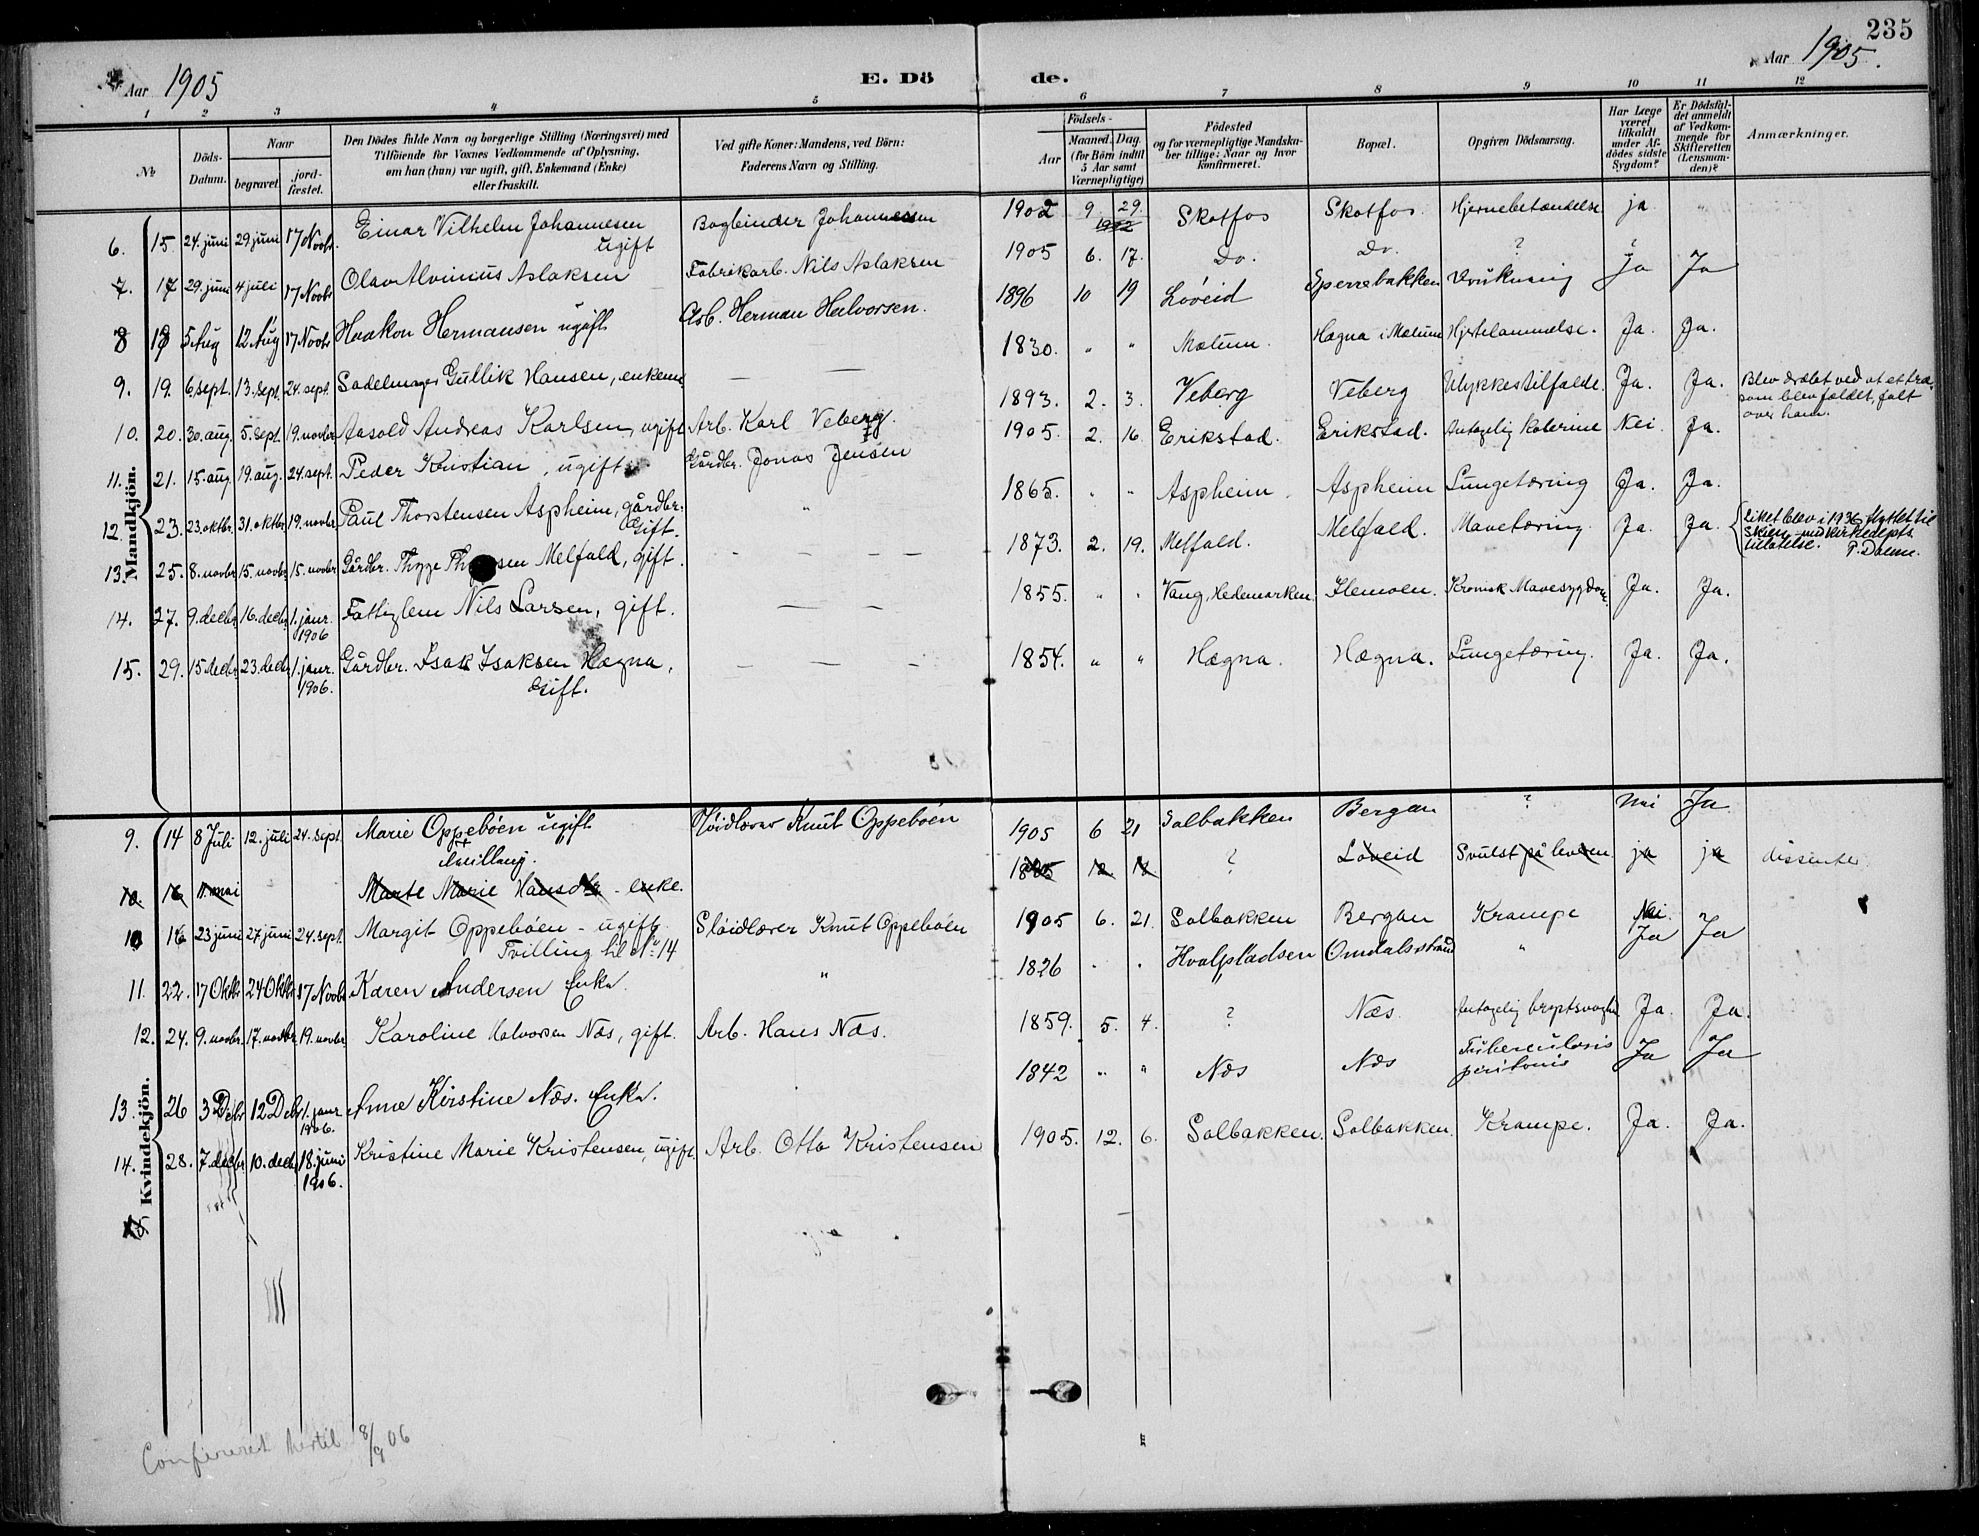 235
Aar 1905 E. Dö de. Aar 1905.
1 2 3 4 5 6 7 8 9 10 11 12
No.
Döds-Datum.
Naar
begravet. jord-fæstet.
Den Dödes fulde Navn og borgerlige Stilling (Næringsvei) med
Tilföiende for Voxnes Vedkommende af Oplysning,
om han (hun) var ugift, gift, Enkemand (Enke)
eller fraskilt.
Ved gifte Koner: Mandens, ved Börn:
Faderens Navn og Stilling.
Födsels-
Aar Maaned. Dag.
(for Börn indtil
5 Aar samt
Værnepligtige)
Födested
og for værnepligtige Mandska-
ber tillige: Naar og hvor
konfirmeret.
Bopæl.
Opgiven Dödsaarsag.
Har Læge
været
tilkaldt
under Af-
dödes sidste
Sygdom?
Er Dödsfal-
det anmeldt
af Vedkom-
mende for
Skifteretten
(Lensman-
den)?
Anmærkninger.
Mandkjön.
6. 15 24. juni 29. juni 17 Novbr. Einar Vilhelm Johannesen ugift Bogbinder Johannesen 1902 9. 29. 1902 Skotfos Skotfos. Hjernebetændelse ja "
7. 17 29. juni 4 juli 17 Novbr Olav Alvinius Aslaksen Fabrikarb. Nils Aslaksen 1905 6. 17. Do. Do. ? ?
8 18 5 Aug 12 Aug 17 Novbr Haakon Hermansen ugift Arb. Herman Halvorsen. 1896 10 19 Löveid Sperrebakken Drukning Ja Ja
9. 19. 6. sept. 13. sept. 24. sept. Sadelmager Gullik Hansen, enkem — — 1830. " " Mælum. Hægna i Mælum Hjertelammelse. Ja. Ja.
10. 20. 30. aug. 5. sept. 19. novbr. Aasold Andreas Karlsen, ugift Arb. Karl Veberg. 1893. 2. 3. Veberg Veberg Ulykkestilfælde. Ja. Ja. Blev dræbt ved at et træ,
som blev fældet, falt
over ham.
11. 21. 15. aug. 19. aug. 24. sept. Peder Kristian, ugift Gårdbr. Jonas Jensen 1905. 2. 16 Erikstad. Erikstad. Antagelig kolerine Nei. Ja.
12. 23. 23. oktbr. 31. oktbr. 19. novbr. Paul Thorstensen Aspheim, gårdbr. Gift. " 1865. " " Aspheim. Aspheim Lungetæring Ja. Ja.
13. 25. 8. novbr. 15. novbr. 15. novbr. Gårdbr. Thygesen Melfald, gift. — — — — 1873. 2. 19. Melfald. Melfald. Mavetæring. Ja. Ja. Liket blev i 1936 flyttet til
Skien med Kirkedepts
tillatelse.
14. 27. 9. decbr. 16. decbr. 1. janr. 1906 Fattiglem Nils Larsen, gift. — — — 1855. " " Vang, Hedemarken. Klemoen. Kronisk Mavesygdom. Ja. Ja.
15. 29. 15 decbr. 23. decbr. 1. janr. 1906. Gårdbr. Isak Isaksen Hægna, Gift. — — — 1854. " " Hægna. Hægna. Lungetæring. Ja. Ja.
Kvindekjön.
9. 14 8 Juli 12. juli 24. sept. Marie Oppebøen ugift Sløidlærer Knut Oppebøen 1905 6 21 Solbakken Bergan ? nei Ja
tvilling.
10. 16 11. mai Marte Marie Hansdtr - enke. ? Löveid Svulst på leveren. ja ja dissenter
10 16 23 juni 27 juni 24. sept. Margit Oppebøen - ugift Sløidlærer Knut Oppebøen 1905 6. 21. Solbakken Bergan Krampe Nei. Ja
Tvilling til No 14
11. 22. 17 Oktbr 24 Oktbr 17 Novbr Karen Andersen Enke. " 1826 . . Hvalpladsen Omdalsstrand " Ja
12. 24. 9. novbr. 17. novbr. 19. novbr. Karoline Halvorsen Næs, gift. Arb. Hans Næs. 1859. 5. 4. ? Næs Ja. Ja.
13. 26 3 Decbr 12 Decbr 1. janr 1906. Anne Kirstine Næs. Enke. 1842 " " Næs Næs Tuberculosis peritonis Ja Ja
14. 28. 7. decbr. 10. decbr. 18. juni 1906. Kristine Marie Kristensen, ugift. Arb. Otto Kristensen 1905. 12. 6. Solbakken. Solbakken. Krampe. Ja. Ja.
15
Confereret hertil 8/9 06